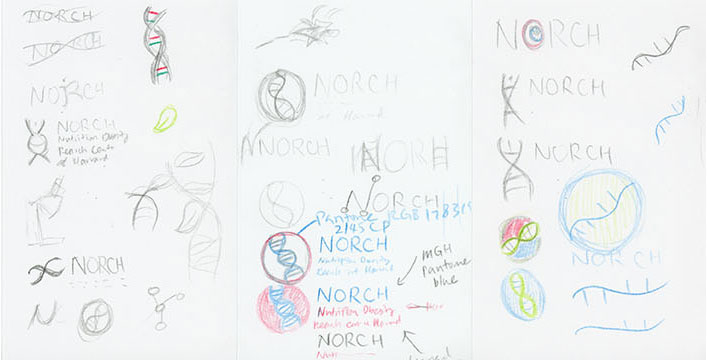 NORCH
NORCH
NORCH
NORCH
Nutrition Obesity
Reach Cente
at Harvard
NORCH
N
NORCH
at Harvard
NORCH
NORCH
NORCH
Pantone RGB
2145 CP
NORCH
Nutrition Obesity
Reach at Harvard
MGH
Pantone
blue
NORCH
Nutrition Obesity
Reach Harvard
NORCH
Nutri
NORCH
NORCH
NORCH
NORCH